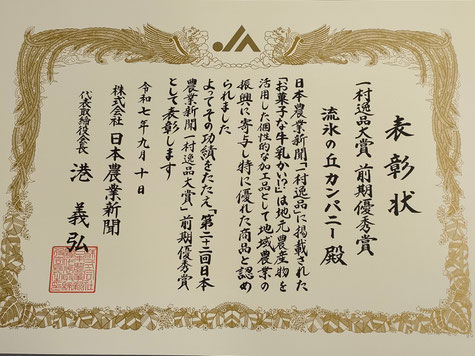 表彰状
一村逸品大賞 前期優秀賞
流氷の丘カンパニー 殿
日本農業新聞「一村逸品」に掲載された
「お菓子な牛乳かい!?」は地元農産物を
活用した個性的な加工品として地域農業の
振興に寄与し特に優れた商品と認め
られました
よってその功績をたたえ「第二十二回日本
農業新聞一村逸品大賞」前期優秀賞
として表彰します
令和七年九月十日
株式会社 日本農業新聞
代表取締役会長 港 義弘